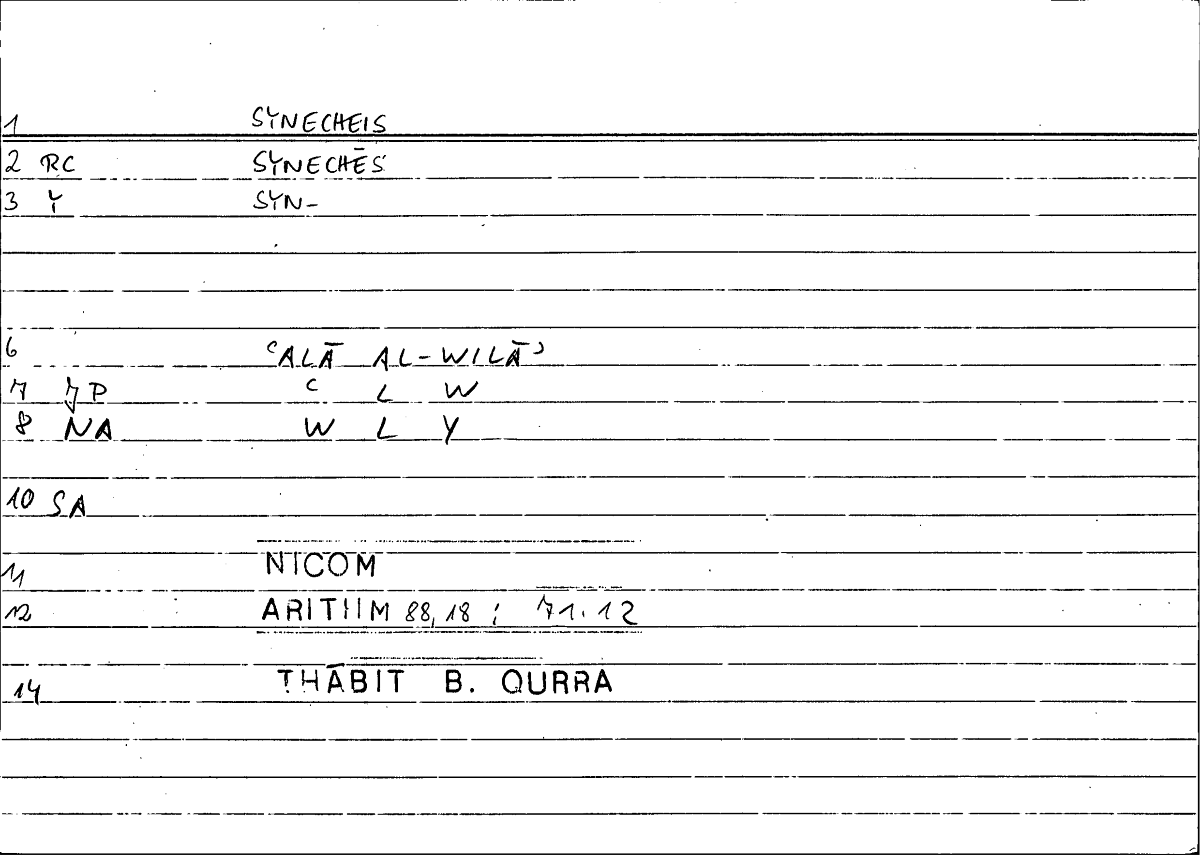 1 SYNECHEIS
2 RC SYNECHĒS
3 Y SYN-
6 ʿALĀ AL-WILĀʾ
7 JP ʿ L W
8 NA W L Y
10 SA
11 NICOM
12 ARITHM 88,18 ; 71.12
14 THĀBIT B. QURRA